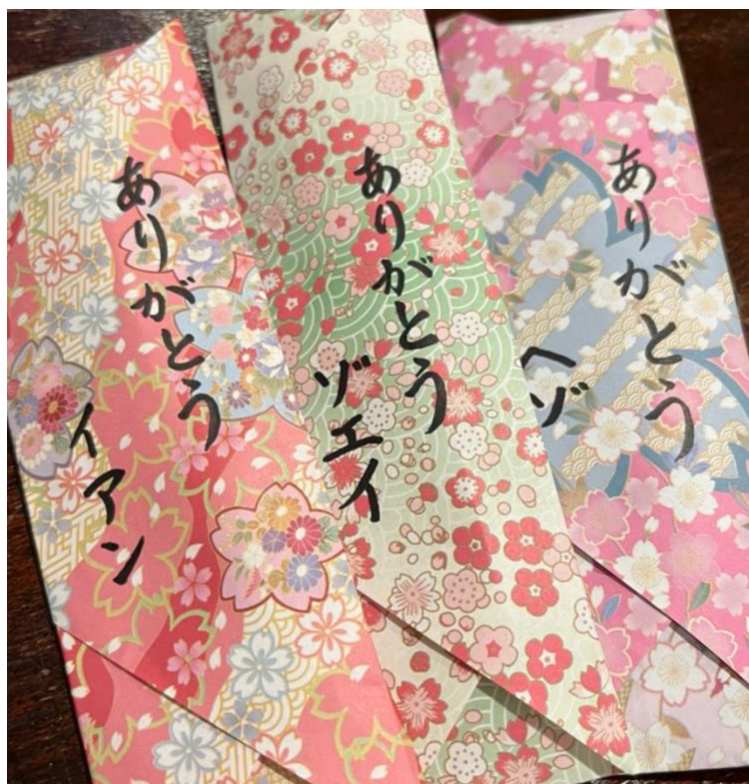 ありがとう
イアン
ありがとう
ゾエイ
ありがとう
ヘゾ